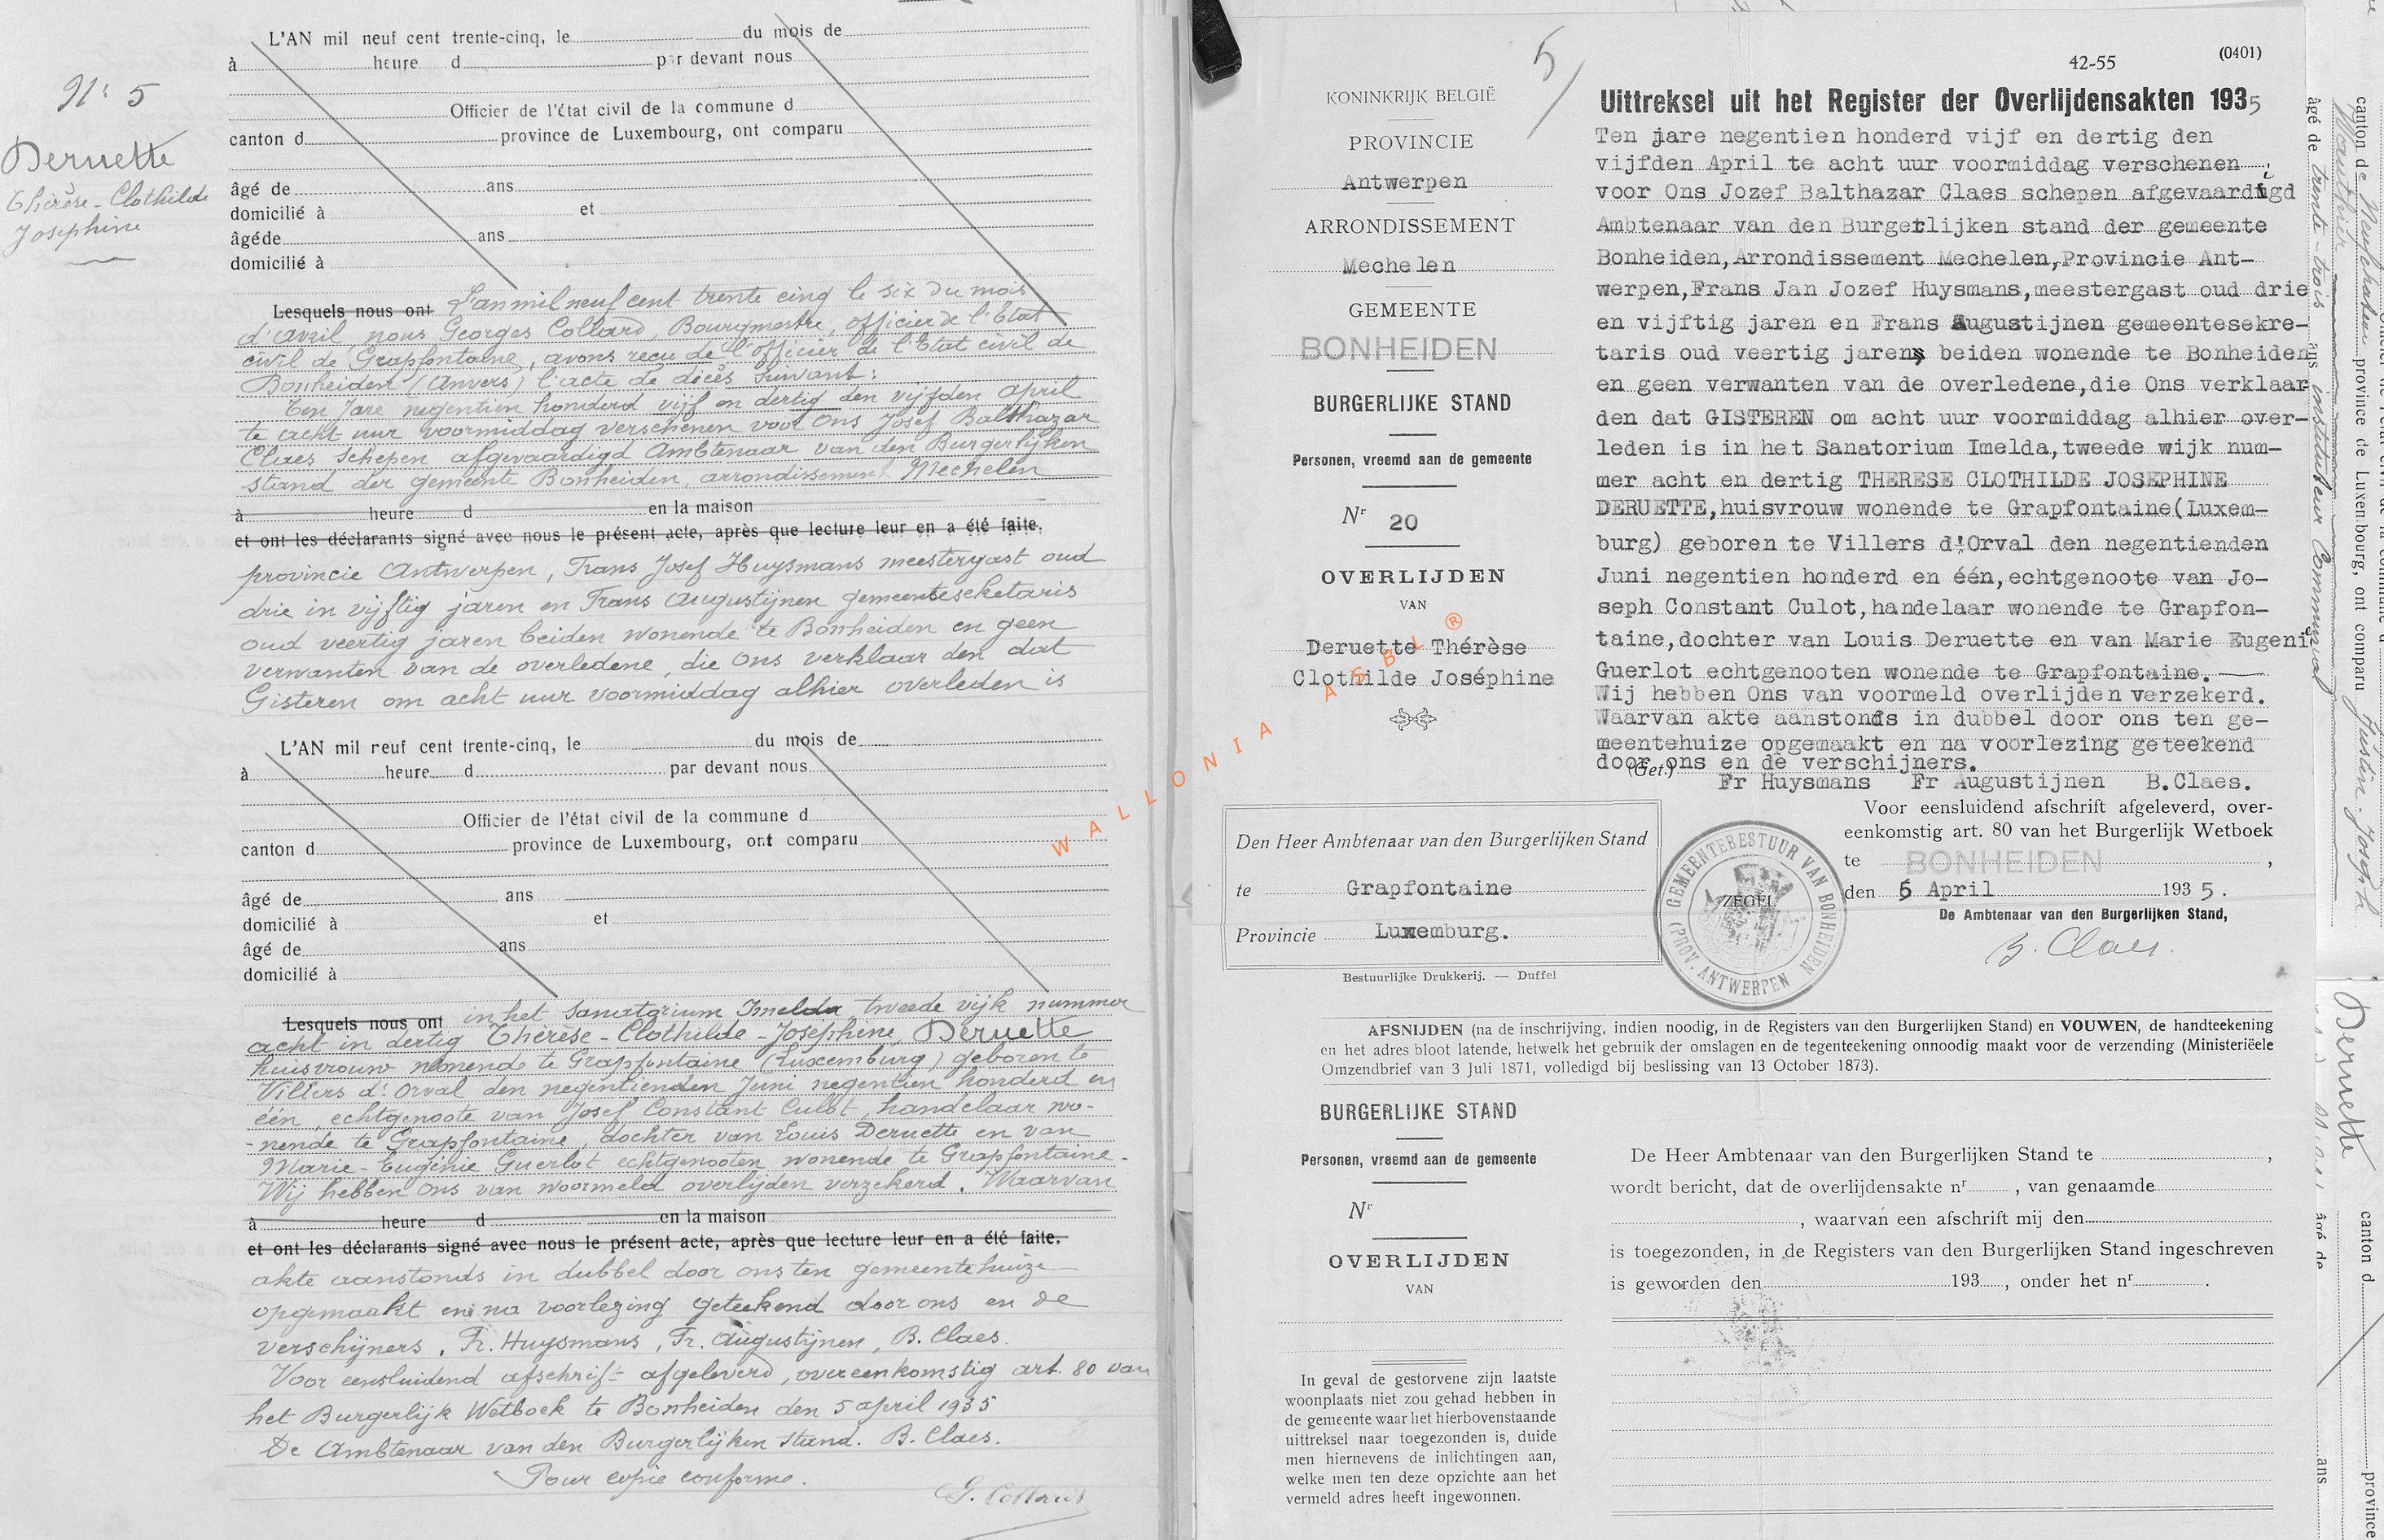 N° 5
Deruette
Thérèse-Clothilde
Joséphine
L'AN mil neuf cent trente-cinq, le du mois de
à heure d par devant nous
Officier de l'état civil de la commune d
canton d province de Luxembourg, ont comparu
âgé de ans
domicilié à et
âgé de ans
domicilié à
Lesquels nous ont L'an mil neuf cent trente cinq le six du mois
d'avril, nous Georges Collard, Bourgmestre, officier de l'Etat
civil de Grapfontaine, avons reçu de l'officier de l'Etat civil de
Bonheiden (Anvers) l'acte de décès suivant :
Ten Jare negentien honderd vijf en dertig den vijfden april
te acht uur voormiddag verschenen voor Ons Josef Balthazar
Claes Schepen afgevaardigd Ambtenaar van den Burgerlijken
stand der gemeente Bonheiden, arrondissement Mechelen
à heure d en la maison
et ont les déclarants signé avec nous le présent acte, après que lecture leur en a été faite.
provincie Antwerpen, Frans Josef Huysmans meestergast oud
drie in vijftig jaren en Frans Augustijnen gemeenteseketaris
oud veertig jaren beiden wonende te Bonheiden en geen
verwanten van de overledene, die Ons verklaar den dat
Gisteren om acht uur voormiddag alhier overleden is
L'AN mil neuf cent trente-cinq, le du mois de
à heure d par devant nous
Officier de l'état civil de la commune d
canton d province de Luxembourg, ont comparu
âgé de ans
domicilié à et
âgé de ans
domicilié à
Lesquels nous ont in het Sanatorium Imelda, tweede vijk nummer
acht in dertig Thérèse-Clothilde-Joséphine, Deruette
huisvrouw wonende te Grapfontaine (Luxemburg) geboren te
Villers d'Orval den negentienden Juni negentien honderd en
één, echtgenoote van Josef Constant Culot, handelaar wo-
-nende te Grapfontaine, dochter van Louis Deruette en van
Marie-Eugénie Guerlot echtgenooten wonende te Grapfontaine.
Wij hebben Ons van voormeld overlijden verzekerd. Waarvan
à heure d en la maison
et ont les déclarants signé avec nous le présent acte, après que lecture leur en a été faite.
akte aanstonds in dubbel door ons ten gemeentehuize
opgemaakt en na voorlezing geteekend door ons en de
verschijners, Fr. Huysmans, Fr. Augustijnen, B. Claes.
Voor eensluidend afschrift afgeleverd, overeenkomstig art. 80 van
het Burgerlijk Wetboek te Bonheiden den 5 april 1935
De Ambtenaar van den Burgerlijken Stand. B. Claes.
Pour copie conforme.
G. Collard
WALLONIA ASBL ®
5
KONINKRIJK BELGIË
PROVINCIE
Antwerpen
ARRONDISSEMENT
Mechelen
GEMEENTE
BONHEIDEN
BURGERLIJKE STAND
Personen, vreemd aan de gemeente
Nr 20
OVERLIJDEN
VAN
Deruette Thérèse
Clothilde Joséphine
42-55
(0401)
Uittreksel uit het Register der Overlijdensakten 1935
Ten jare negentien honderd vijf en dertig den
vijfden April te acht uur voormiddag verschenen
voor Ons Jozef Balthazar Claes schepen afgevaardigd
Ambtenaar van den Burgerlijken stand der gemeente
Bonheiden, Arrondissement Mechelen, Provincie Ant-
werpen, Frans Jan Jozef Huysmans, meestergast oud drie
en vijftig jaren en Frans Augustijnen gemeentesekre-
taris oud veertig jaren, beiden wonende te Bonheiden
en geen verwanten van de overledene, die Ons verklaar-
den dat GISTEREN om acht uur voormiddag alhier over-
leden is in het Sanatorium Imelda, tweede wijk num-
mer acht en dertig THERESE CLOTHILDE JOSEPHINE
DERUETTE, huisvrouw wonende te Grapfontaine(Luxem-
burg) geboren te Villers d'Orval den negentienden
Juni negentien honderd en één, echtgenoote van Jo-
seph Constant Culot, handelaar wonende te Grapfon-
taine, dochter van Louis Deruette en van Marie Eugenie
Guerlot echtgenooten wonende te Grapfontaine.
Wij hebben Ons van voormeld overlijden verzekerd.
Waarvan akte aanstonds in dubbel door ons ten ge-
meentehuize opgemaakt en na voorlezing geteekend
door ons en de verschijners.
(Get.) Fr Huysmans Fr Augustijnen B.Claes.
Den Heer Ambtenaar van den Burgerlijken Stand
te Grapfontaine
Provincie Luxemburg.
Bestuurlijke Drukkerij. — Duffel
GEMEENTEBESTUUR VAN BONHEIDEN
(PROV. ANTWERPEN)
ZEGEL
Voor eensluidend afschrift afgeleverd, over-
eenkomstig art. 80 van het Burgerlijk Wetboek
te BONHEIDEN,
den 5 April 1935.
De Ambtenaar van den Burgerlijken Stand,
B. Claes.
AFSNIJDEN (na de inschrijving, indien noodig, in de Registers van den Burgerlijken Stand) en VOUWEN, de handteekening
en het adres bloot latende, hetwelk het gebruik der omslagen en de tegenteekening onnoodig maakt voor de verzending (Ministeriëele
Omzendbrief van 3 Juli 1871, volledigd bij beslissing van 13 October 1873).
BURGERLIJKE STAND
Personen, vreemd aan de gemeente
Nr
OVERLIJDEN
VAN
In geval de gestorvene zijn laatste
woonplaats niet zou gehad hebben in
de gemeente waar het hierbovenstaande
uittreksel naar toegezonden is, duide
men hiernevens de inlichtingen aan,
welke men ten deze opzichte aan het
vermeld adres heeft ingewonnen.
De Heer Ambtenaar van den Burgerlijken Stand te ,
wordt bericht, dat de overlijdensakte nr , van genaamde
, waarvan een afschrift mij den
is toegezonden, in de Registers van den Burgerlijken Stand ingeschreven
is geworden den 193 , onder het nr .
canton de Neufchâteau province de Luxembourg, ont comparu Justin-Joseph
âgé de trente-trois ans instituteur communal
Deruette
canton d province
âgé de ans